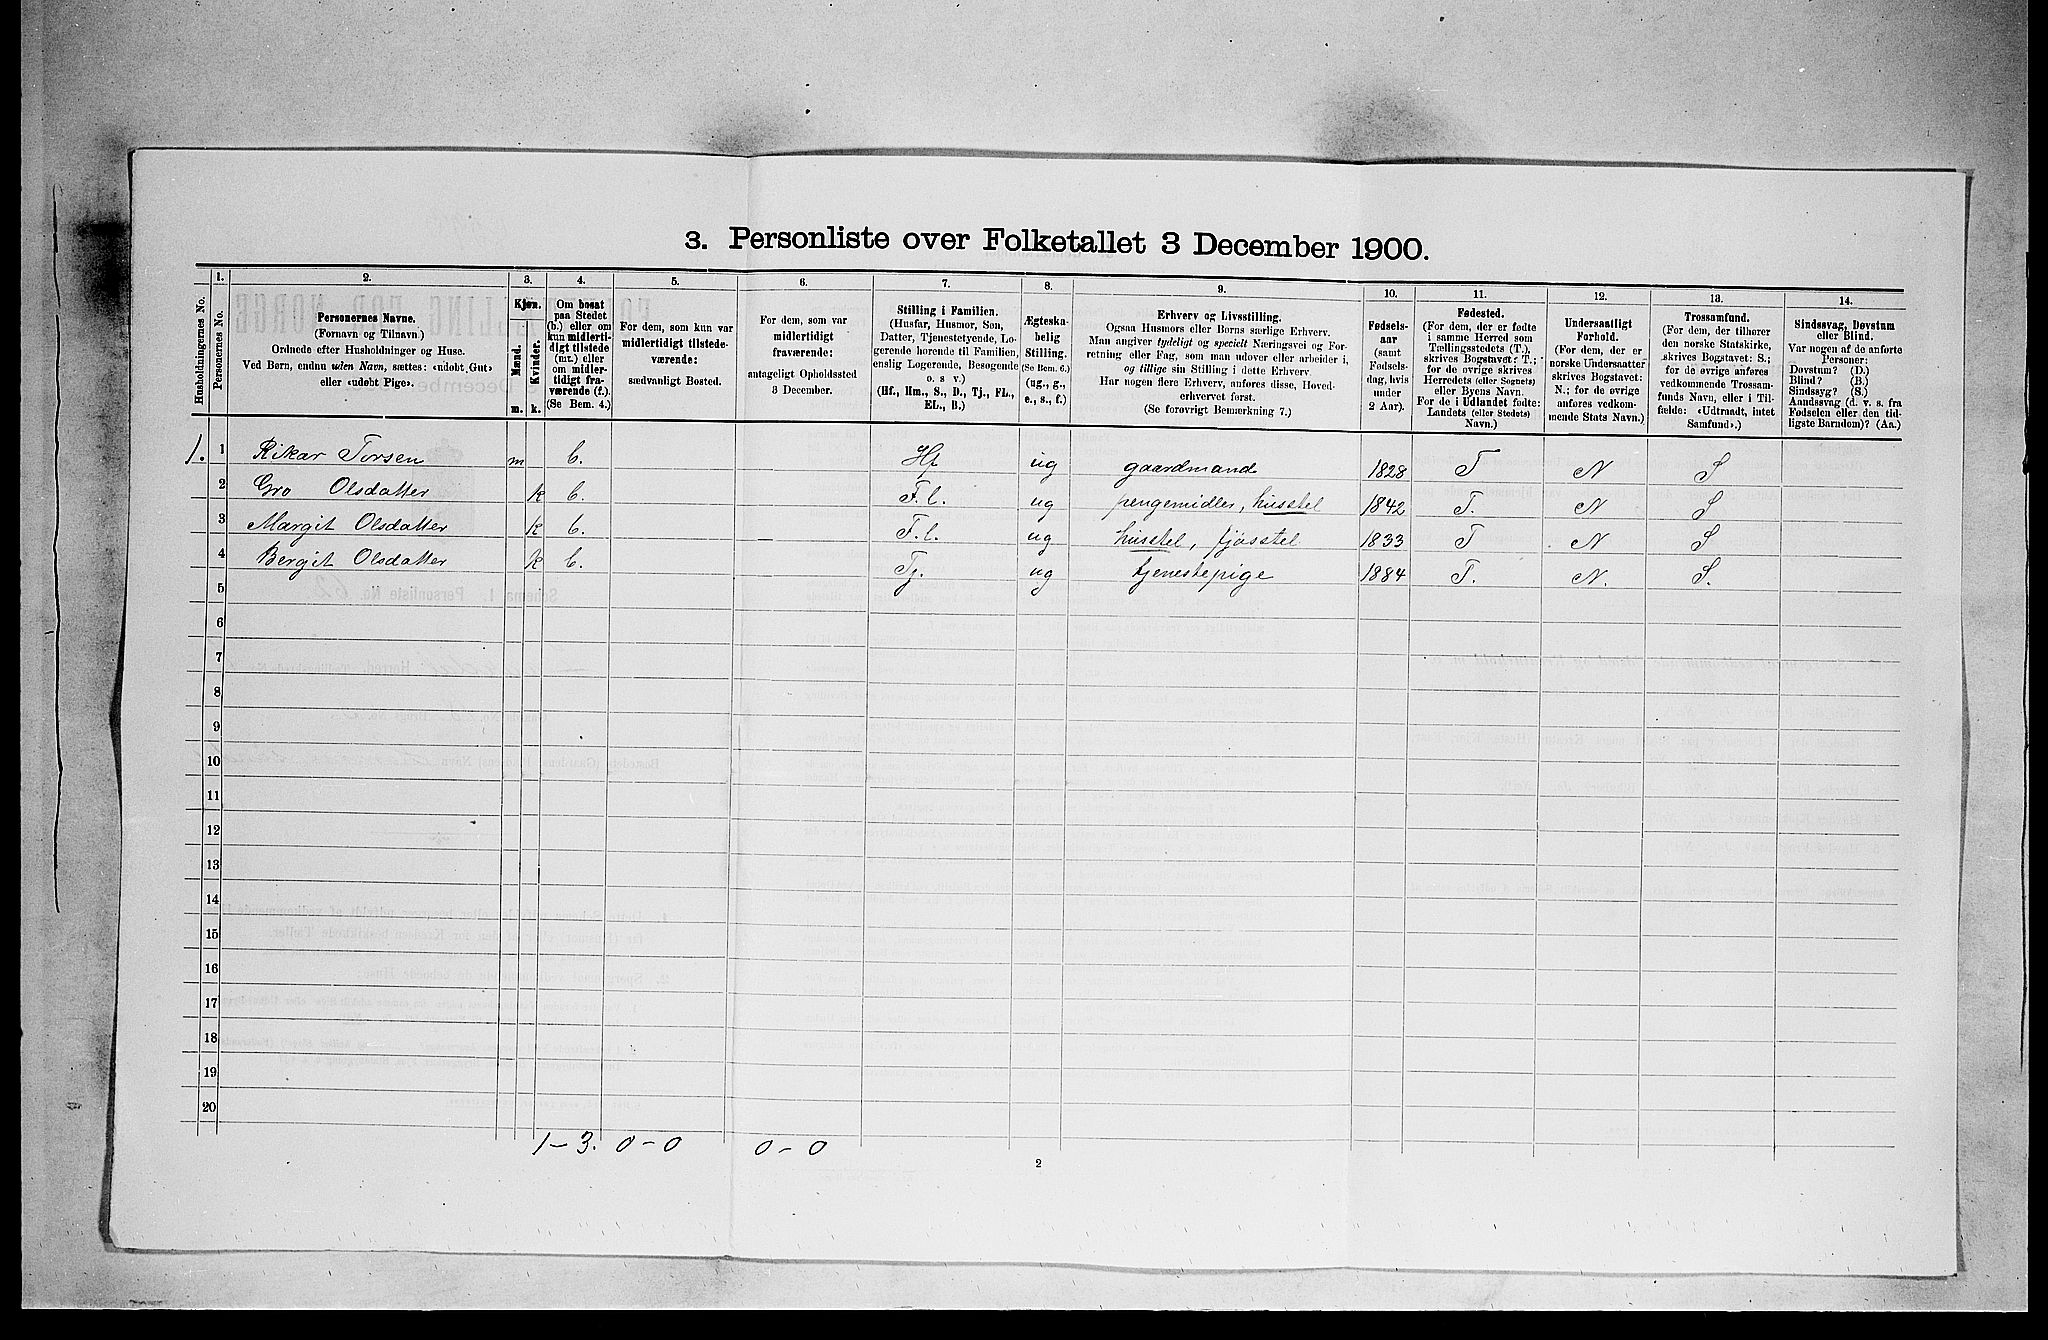 3. Personliste over Folketallet 3 December 1900.
1. 2. 3. 4. 5. 6. 7. 8. 9. 10. 11. 12. 13. 14.
Husholdningernes No.
Personernes No.
Personernes Navne.
(Fornavn og Tilnavn)
Ordnede efter Husholdninger og Huse.
Ved Børn, endnu uden Navn, sættes: «udøbt Gut»
eller «udøbt Pige».
Kjøn.
Mænd.
Kvinder.
m. k.
Om bosat
paa Stedet
(b.) eller om
kun midlerti-
digt tilstede
(mt.) eller
om midler-
tidigt fra-
værende (f.).
(Se Bem. 4.)
For dem, som kun var
midlertidigt tilstede-
værende:
sædvanligt Bosted.
For dem, som var
midlertidigt
fraværende:
antageligt Opholdssted
3 December.
Stilling i Familien.
(Husfar, Husmor, Søn,
Datter, Tjenestetyende, Lo-
gerende hørende til Familien,
enslig Logerende, Besøgende
o. s v.)
(Hf., Hm., S., D., Tj., FL.,
EL., B.)
Ægteska-
belig
Stilling.
(Se Bem. 6.)
(ug., g.,
e., s., f.)
Erhverv og Livsstilling.
Ogsaa Husmors eller Børns særlige Erhverv.
Man angiver tydeligt og specielt Næringsvei og For-
retning eller Fag, som man udøver eller arbeider i,
og tillige sin Stilling i dette Erhverv.
Har nogen flere Erhverv, anføres disse, Hoved-
erhvervet først.
(Se forøvrigt Bemærkning 7.)
Fødsels-
aar
(samt
Fødsels-
dag, hvis
under
2 Aar).
Fødested.
(For dem, der er fødte
i samme Herred som
Tællingsstedets (T.),
skrives Bogstavet: T.;
for de øvrige skrives
Herredets (eller Sognets)
eller Byens Navn.
For de i Udlandet fødte:
Landets (eller Stedets)
Navn.)
Undersaatligt
Forhold.
(For dem, der er
norske Undersaatter
skrives Bogstavet:
N.; for de øvrige
anføres vedkom-
mende Stats Navn.)
Trossamfund.
(For dem, der tilhører
den norske Statskirke,
skrives Bogstavet: S.;
for de øvrige anføres
vedkommende Trossam-
funds Navn, eller i Til-
fælde: «Udtraadt, intet
Samfund».)
Sindssvag, Døvstum
eller Blind.
Var nogen af de anførte
Personer:
Døvstum? (D.)
Blind? (B.)
Sindssyg? (S.)
Aandssvag (d. v. s. fra
Fødselen eller den tid-
ligste Barndom)? (Aa.)
1. 1 Rikar Torsen m b. Hf ug gaardmand 1828 T N S
2 Gro Olsdatter k b. F.l. ug pengemidler, husstel 1842 T. N S
3 Margit Olsdatter k b. F.l. ug husstel, fjøsstel 1833 T N S
4 Bergit Olsdatter k b. Tj. ug tjenestepige 1884 T. N. S.
5
6
7
8
9
10
11
12
13
14
15
16
17
18
19
20
1–3. 0–0 0–0
2